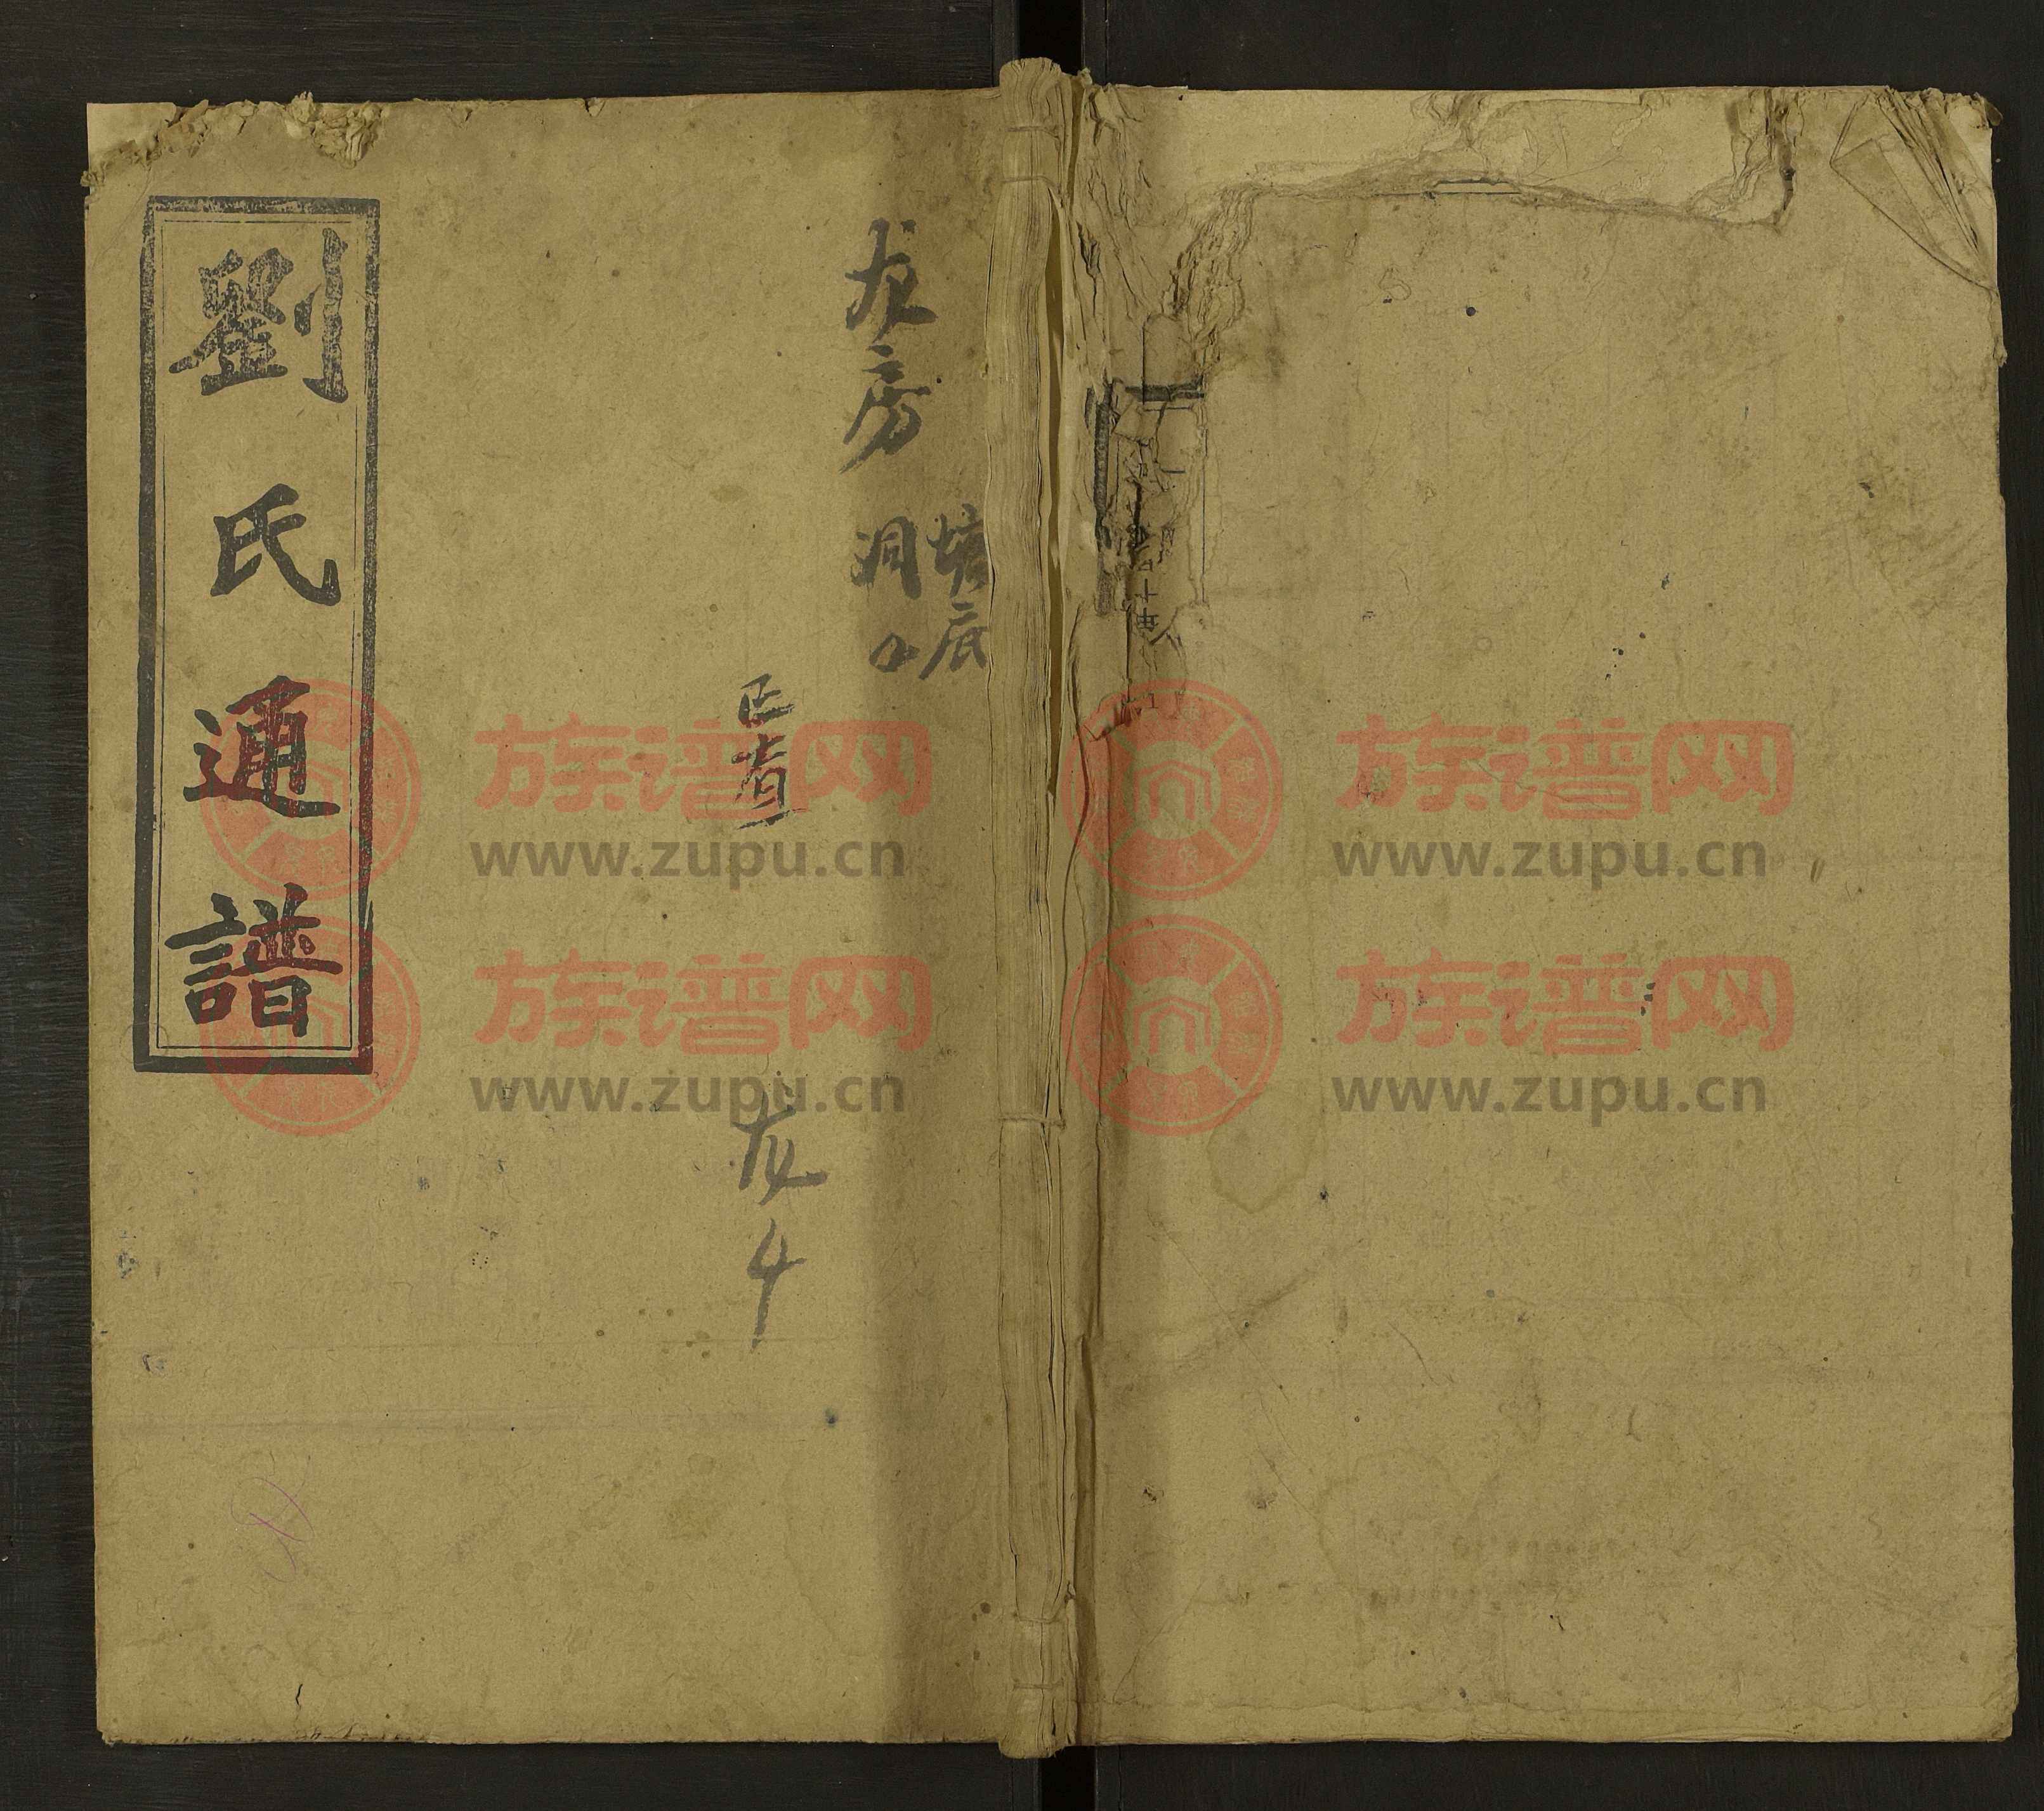 劉氏通譜
龙房
塘底
洞口
正肴
龙4
族谱网
www.zupu.cn
族谱网
www.zupu.cn
族谱网
www.zupu.cn
族谱网
www.zupu.cn